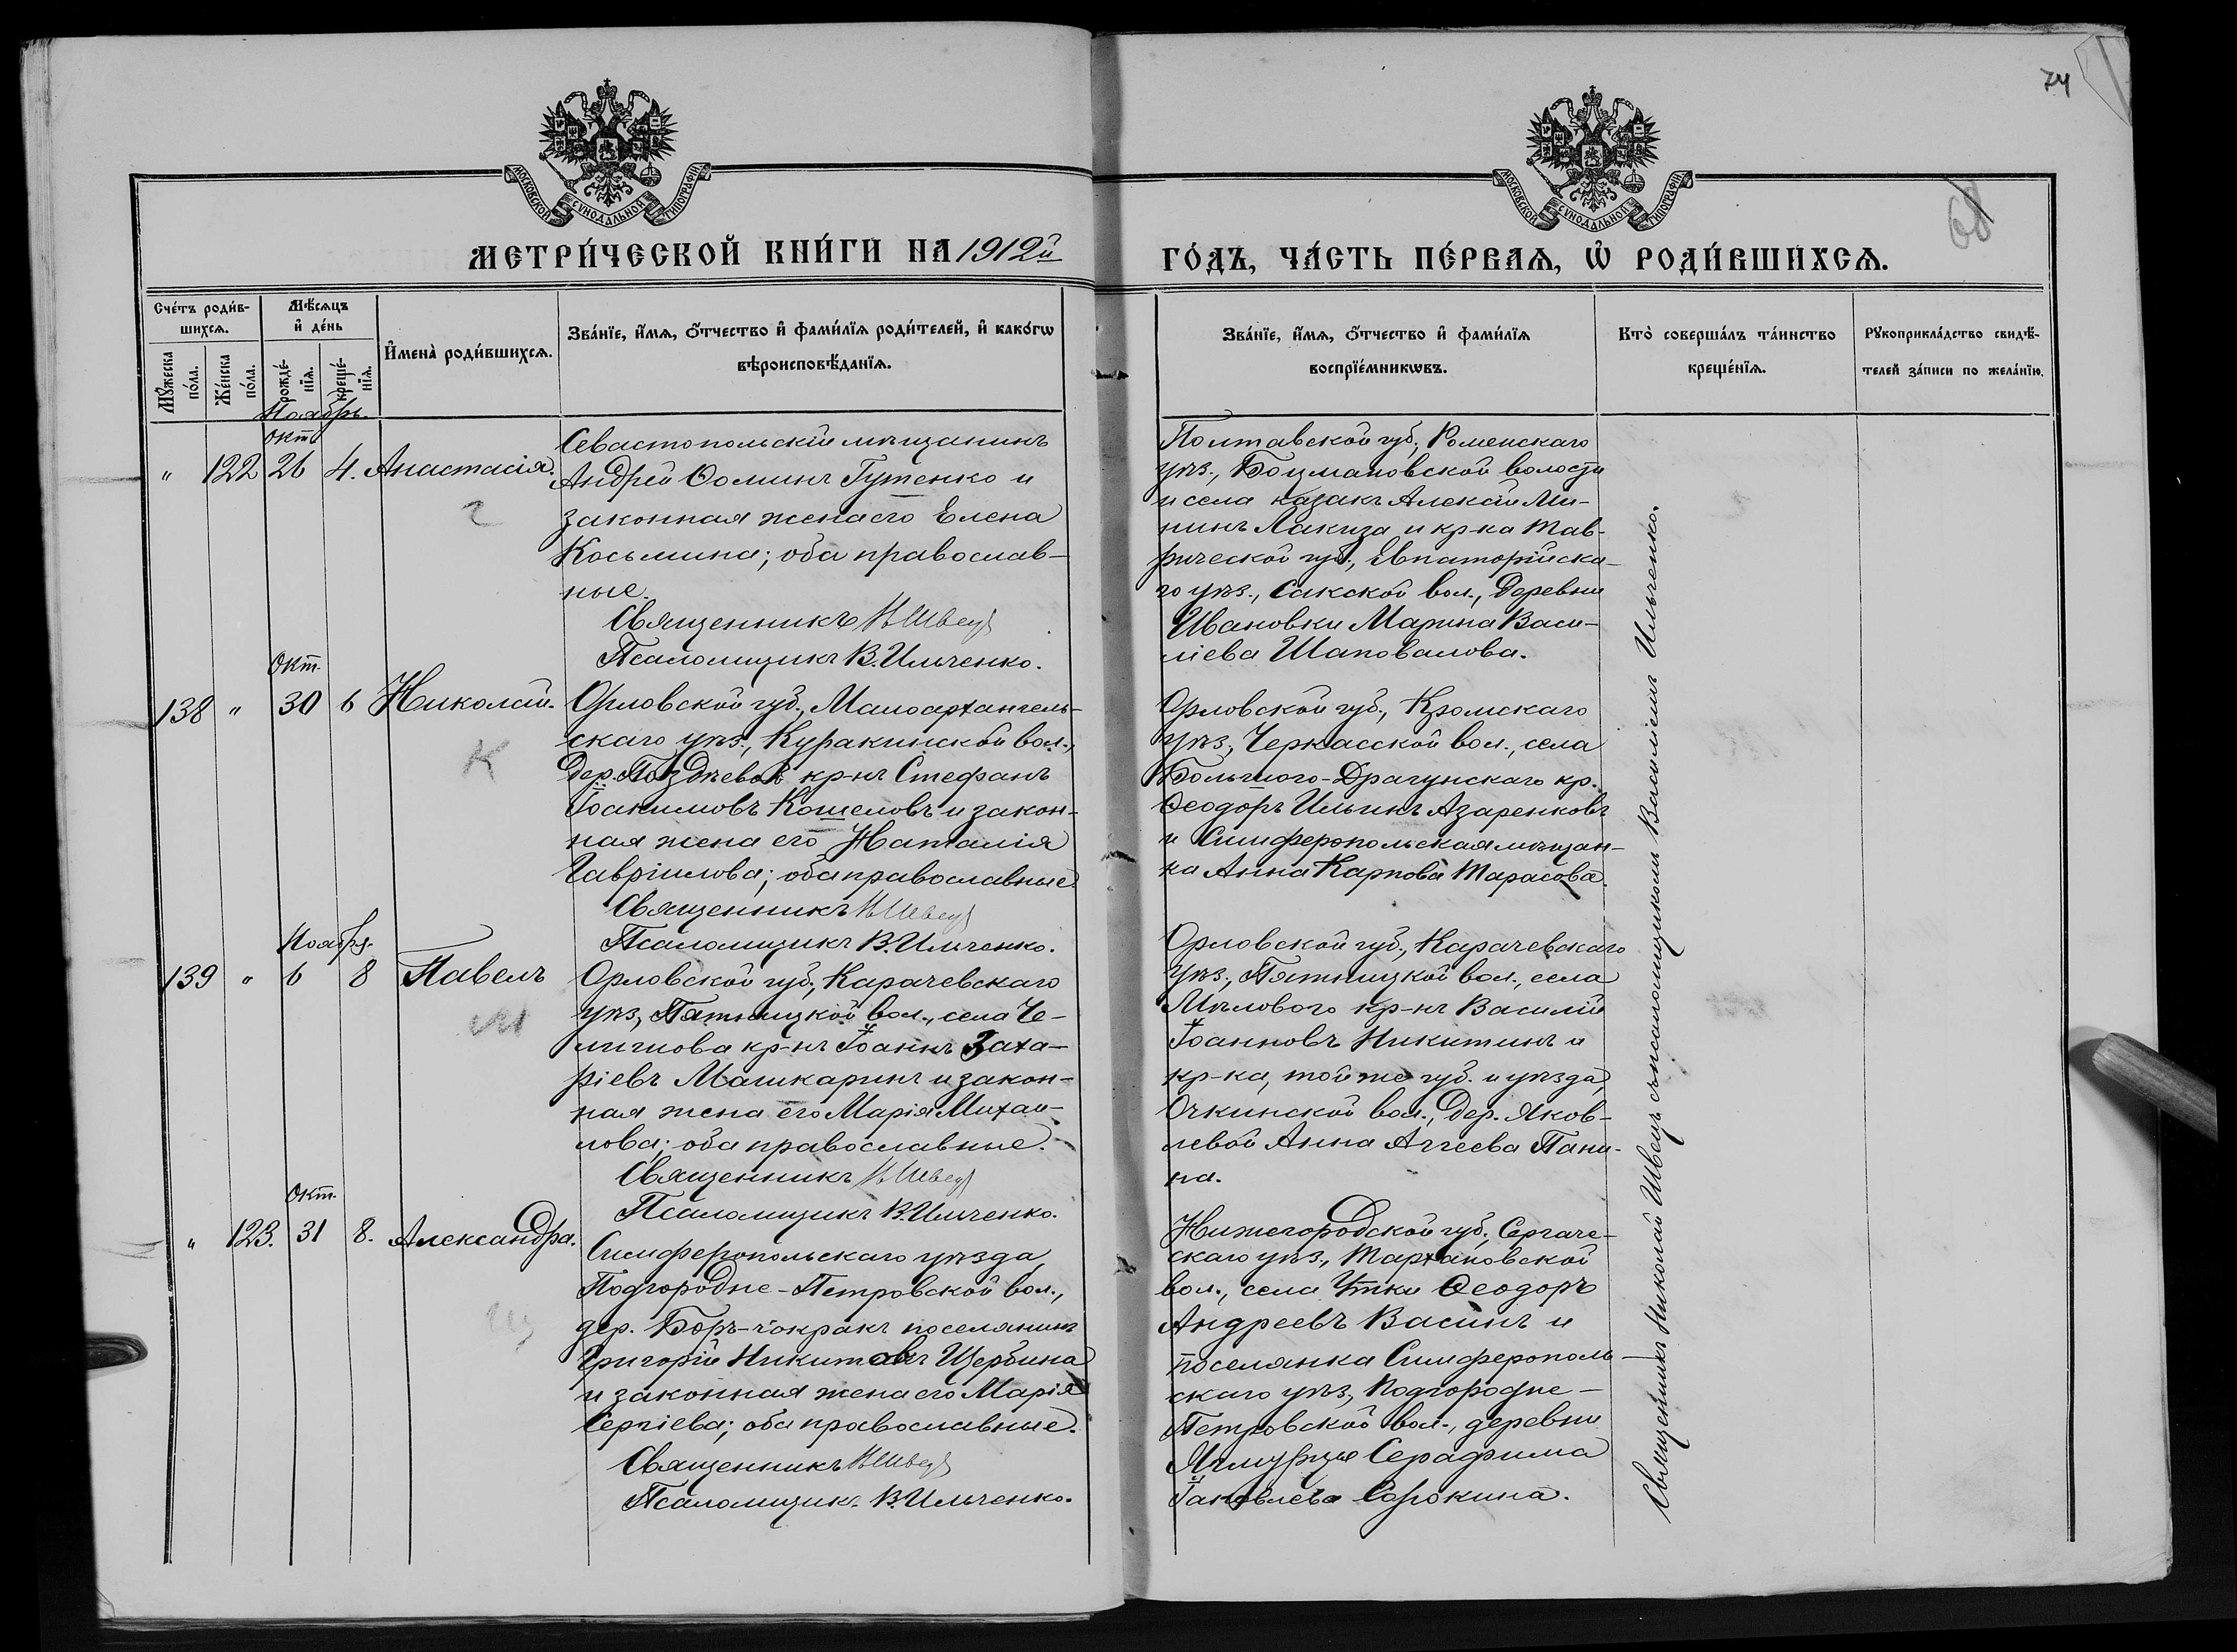 74
МОСКОВСКОЙ СУНОДАЛЬНОЙ ТИПОГРАФІИ
МОСКОВСКОЙ СУНОДАЛЬНОЙ ТИПОГРАФІИ
МЕТРИ́ЧЕСКОЙ КНИ́ГИ НА 1912й
ГО́ДЪ, ЧА́СТЬ ПЕ́РВАѦ, Ѡ҆ РОДИ́ВШИХСѦ.
Сче́тъ роди́в-
шихсѧ.
Мꙋ́жеска
по́ла.
Же́нска
по́ла.
Мѣ́сѧцъ
и҆ де́нь
рожде́-
нїѧ.
креще́-
нїѧ.
И҆мена̀ роди́вшихсѧ.
Зва́нїе, и҆́мѧ, ѻ҆́тчество и҆ фами́лїѧ роди́телей, и҆ како́гѡ
вѣроисповѣ́данїѧ.
Зва́нїе, и҆́мѧ, ѻ҆́тчество и҆ фами́лїѧ
воспрїе́мникѡвъ.
Кто̀ соверша́лъ та́инство
креще́нїѧ.
Рꙋкоприкла́дство свидѣ́-
телей за́писи по жела́нїю.
Ноябрь.
Окт
" 122 26 4. Анастасія.
Г
Севастопольскій мѣщанинъ
Андрей Ѳоминъ Гутенко и
законная жена его Елена
Косьмина; оба православ-
ные.
Священникъ Н Швец
Псаломщикъ В. Ильченко.
Полтавской губ., Роменскаго
уѣз., Боцмановской волости
и села казакъ Алексій Ми-
нинъ Лакиза и кр-ка Тав-
рической губ., Евпаторійска-
го уѣз., Сакской вол., деревни
Ивановки Марина Васи-
ліева Шаповалова.
Окт.
138 " 30 6 Николай.
К
Орловской губ., Малоархангель-
скаго уѣз., Куракинской вол.,
дер. Поздѣевой кр-нъ Стефанъ
Іоакимовъ Кошеловъ и закон-
ная жена его Наталія
Гавріилова; оба православные.
Священникъ Н Швец
Псаломщикъ В. Ильченко.
Орловской губ., Кромскаго
уѣз., Черкасской вол., села
Большого-Драгунскаго кр.
Ѳеодоръ Ильинъ Азаренковъ
и Симферопольская мѣщан-
ка Анна Карпова Тарасова.
Ноября.
139 " 6 8 Павелъ
М
Орловской губ., Карачевскаго
уѣз., Пятницкой вол., села Че-
лигнова кр-нъ Іоаннъ Заха-
ріевъ Машкаринъ и закон-
ная жена его Марія Михаи-
лова; оба православные.
Священникъ Н Швец
Псаломщикъ В. Ильченко.
Орловской губ., Карачевскаго
уѣз., Пятницкой вол., села
Мѣлового кр-нъ Василій
Іоанновъ Никитинъ и
кр-ка, той же губ. и уѣзда,
Очкинской вол., дер. Яков-
левой Анна Аггеева Пани-
на.
Окт.
" 123. 31 8. Александра.
Щ
Симферопольскаго уѣзда,
Подгородне-Петровской вол.,
дер. Боръ-чокракъ поселянинъ
Григорій Никитовъ Щербина
и законная жена его Марія
Сергіева; оба православные.
Священникъ Н Швец
Псаломщикъ В. Ильченко.
Нижегородской губ., Сергаче-
скаго уѣз., Тархановской
вол., села Утки Ѳеодоръ
Андреевъ Васинъ и
поселянка Симферополь-
скаго уѣз., Подгородне-
Петровской вол., деревни
Серафима
Іаковлева Сорокина.
Священникъ Николай Швецъ съ псаломщикомъ Василіемъ Ильченко.